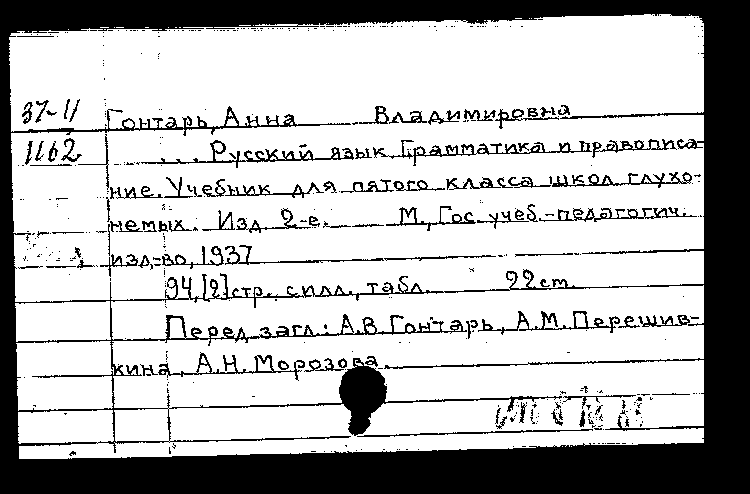 37-11
1162
Гонтарь, Анна Владимировна
... Русский язык. Грамматика и правописа-
ние. Учебник для пятого класса школ глухо-
немых. Изд. 2-е. М., Гос. учеб.-педагогич.
изд-во, 1937
94,[2]стр., с илл., табл. 22 ст.
Перед загл.: А.В. Гонтарь, А.М. Перешив-
кина, А.Н. Морозова.